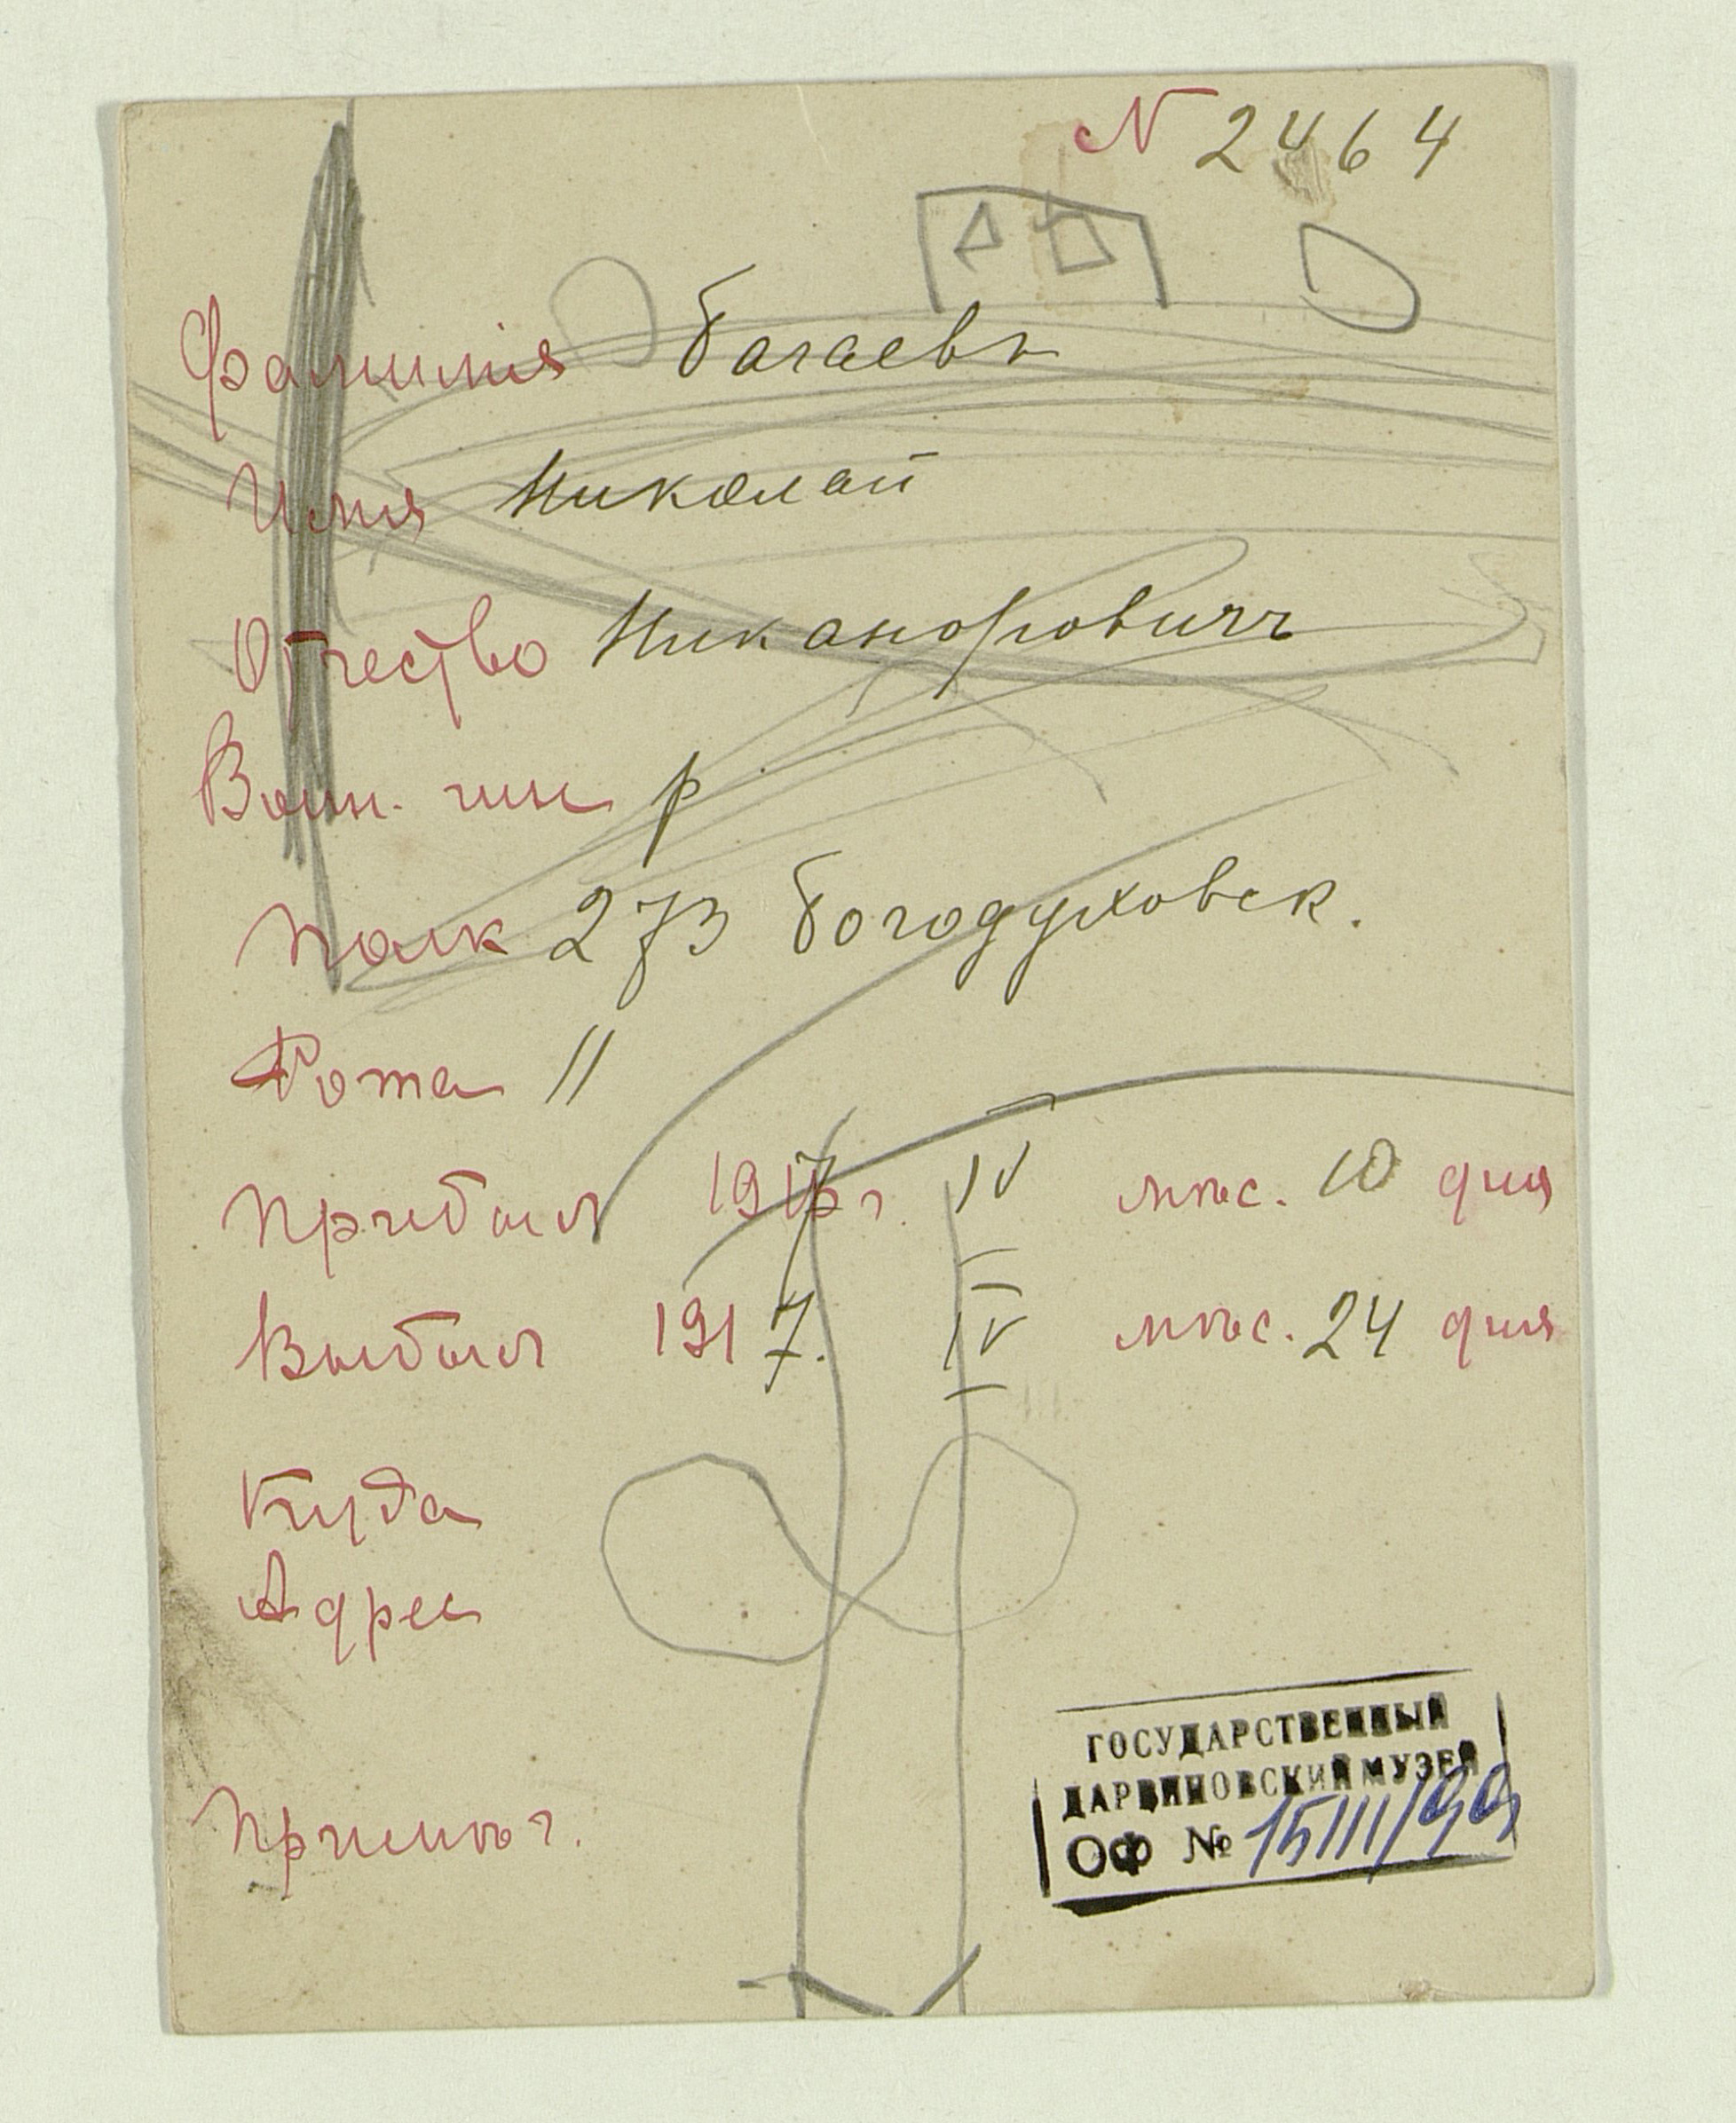 N 2464
Фамилія Багаевъ
Имя Николай
Отчество Никаноровичъ
Воин. чин р
Полк 273 Богодуховск.
Рота 11
Прибыл 1917 г. IV мѣс. 10 дня
Выбыл 1917. IV мѣс. 24 дня
Куда
Адрес
Примѣч.
ГОСУДАРСТВЕННЫЙ
ДАРВИНОВСКИЙ МУЗЕЙ
ОФ №